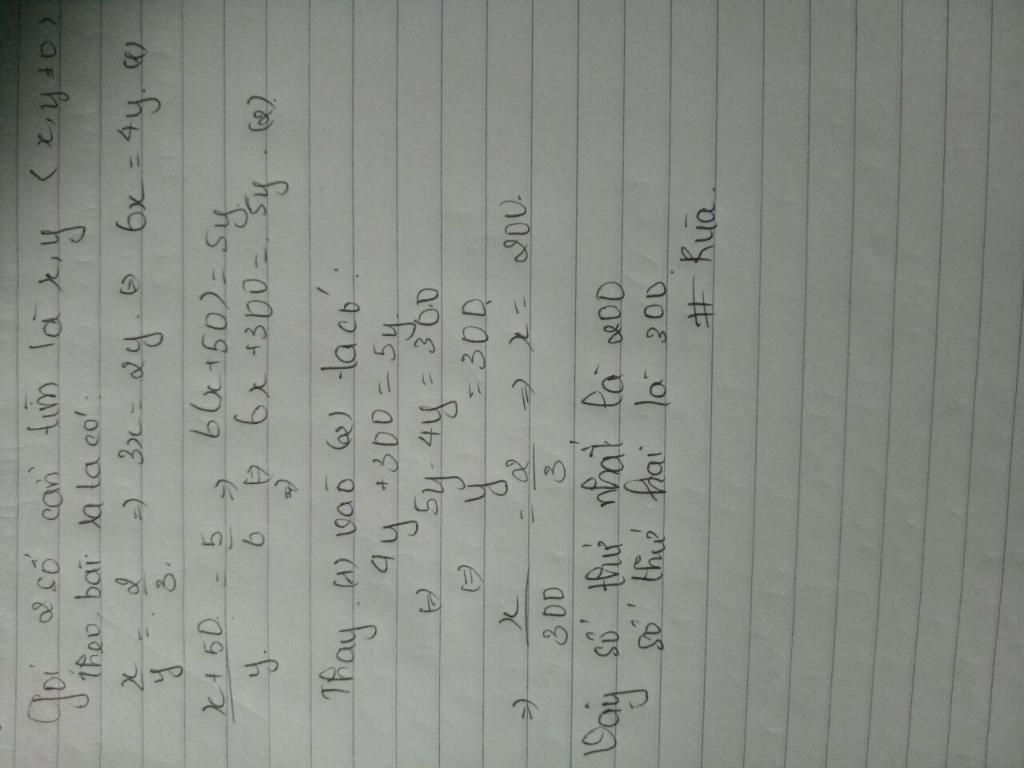 Gọi 2 số cần tìm là x, y ( x, y ≠ 0 )
Theo bài ra ta có:
x/y = 2/3. => 3x = 2y. <=> 6x = 4y. (1)
x + 50/y. = 5/6 => 6(x + 50) = 5y
<=> 6x + 300 = 5y. (2)
=>
Thay (1) vào (2) ta có:
4y + 300 = 5y
<=> 5y - 4y = 300
<=> y = 300.
=> x/300 = 2/3 => x = 200.
Vậy số thứ nhất là 200
số thứ hai là 300
# Rùa.